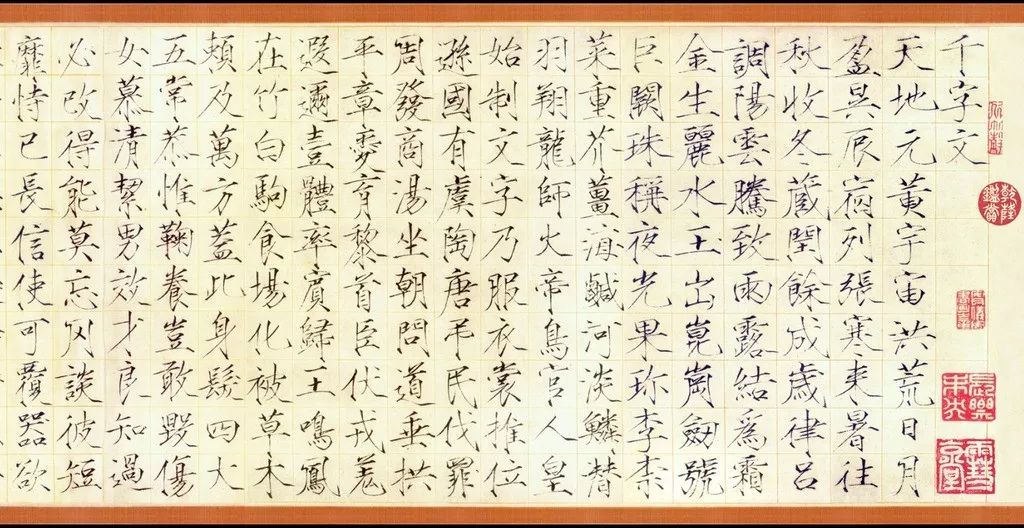 千字文
天地元黄宇宙洪荒日月
盈昃辰宿列張寒来暑往
秋收冬蔵閏餘成歲律呂
調陽雲騰致雨露結爲霜
金生麗水玉出崑崗劒號
巨闕珠稱夜光果珎李柰
菜重芥薑海鹹河淡鱗潜
羽翔龍師火帝鳥官人皇
始制文字乃服衣裳推位
遜國有虞陶唐弔民伐罪
周發商湯坐朝問道垂拱
平章愛育黎首臣伏戎羌
遐邇壹體率賓歸王鳴鳳
在竹白駒食場化被草木
頼及萬方蓋此身髮四大
五常恭惟鞠養豈敢毀傷
女慕清絜男效才良知過
必改得能莫忘罔談彼短
靡恃己長信使可覆器欲
乾隆鑑賞